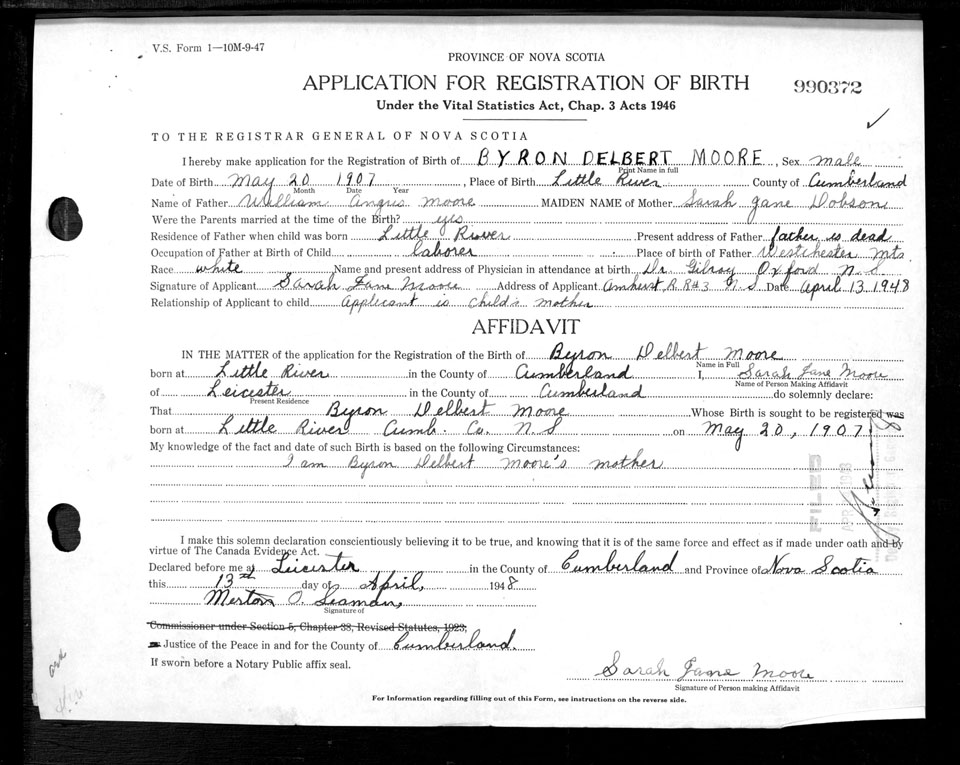 V.S. Form 1—10M-9-47
PROVINCE OF NOVA SCOTIA
APPLICATION FOR REGISTRATION OF BIRTH
990372
Under the Vital Statistics Act, Chap. 3 Acts 1946
TO THE REGISTRAR GENERAL OF NOVA SCOTIA
I hereby make application for the Registration of Birth of BYRON DELBERT MOORE, Sex male
Print Name in full
Date of Birth May 20 1907, Place of Birth Little River County of Cumberland
Month Date Year
Name of Father William Angus Moore MAIDEN NAME of Mother Sarah Jane Dobson
Were the Parents married at the time of the Birth? yes
Residence of Father when child was born Little River Present address of Father father is dead
Occupation of Father at Birth of Child laborer Place of birth of Father Westchester Mts.
Race white Name and present address of Physician in attendance at birth Dr. Gilroy Oxford N.S.
Signature of Applicant Sarah Jane Moore Address of Applicant Amherst R.R#3 N.S. Date April 13 1948
Relationship of Applicant to child Applicant is child's mother
AFFIDAVIT
IN THE MATTER of the application for the Registration of the Birth of Byron Delbert Moore
Name in Full
born at Little River in the County of Cumberland I, Sarah Jane Moore
Name of Person Making Affidavit
of Leicester in the County of Cumberland do solemnly declare:
Present Residence
That Byron Delbert Moore Whose Birth is sought to be registered was
born at Little River Cumb. Co. N.S on May 20, 1907
My knowledge of the fact and date of such Birth is based on the following Circumstances:
I am Byron Delbert Moore's mother
FILED
I make this solemn declaration conscientiously believing it to be true, and knowing that it is of the same force and effect as if made under oath and by
virtue of The Canada Evidence Act.
Declared before me at Leicester in the County of Cumberland and Province of Nova Scotia
this 13th day of April, 1948
Merton O. Seaman,
Signature of
Commissioner under Section 5, Chapter 38, Revised Statutes, 1923,
Justice of the Peace in and for the County of Cumberland.
If sworn before a Notary Public affix seal.
Sarah Jane Moore
Signature of Person making Affidavit
For Information regarding filling out of this Form, see instructions on the reverse side.